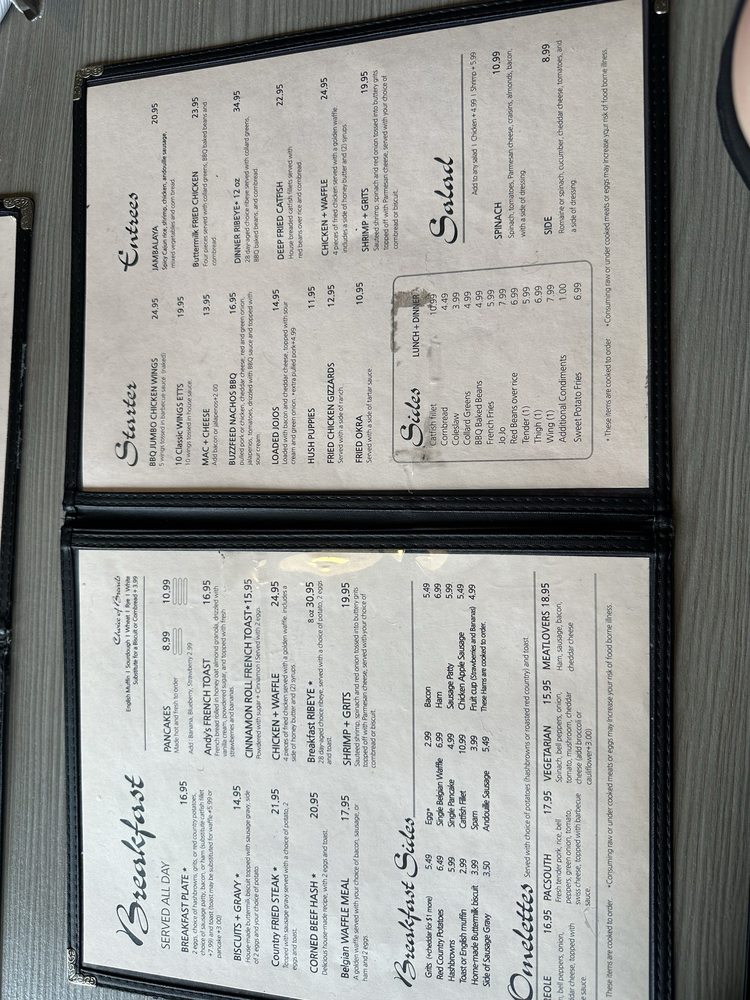 Breakfast
SERVED ALL DAY
BREAKFAST PLATE * 16.95
2 eggs, choice of hashbrowns, grits, or red country potatoes,
choice of sausage patty, bacon, or ham (substitute catfish fillet
+7.99 and toast (toast may be substituted for waffle +5.99 or
pancake +3.00)
BISCUITS + GRAVY * 14.95
House-made buttermilk biscuit topped with sausage gravy, side
of 2 eggs and your choice of potato
Country FRIED STEAK * 21.95
Topped with sausage gravy served with a choice of potato, 2
eggs and toast.
CORNED BEEF HASH * 20.95
Delicious house-made recipe, with 2 eggs and toast.
Belgian WAFFLE MEAL 17.95
A golden waffle served with your choice of bacon, sausage, or
ham and 2 eggs
Choice of Breads
English Muffin | Sourdough | Wheat | Rye | White
Substitute for a Biscuit or Cornbread + 3.99
PANCAKES 8.99 10.99
Made hot and fresh to order
Add : Banana, Blueberry, Strawberry 2.99
Andy's FRENCH TOAST 16.95
French bread rolled in honey oat almond granola, drizzled with
vanilla cream, powdered sugar, and topped with fresh
strawberries and bananas
CINNAMON ROLL FRENCH TOAST* 15.95
Powdered with sugar + Cinnamon | Served with 2 eggs.
CHICKEN + WAFFLE 24.95
4 pieces of fried chicken served with a golden waffle. includes a
side of honey butter and (2) syrups.
Breakfast RIBEYE * 8 oz 30.95
28 day-aged choice ribeye, served with a choice of potato, 2 eggs
and toast.
SHRIMP + GRITS 19.95
Sauteed shrimp, spinach and red onion tossed into buttery grits
topped off with Parmesan cheese, served with your choice of
cornbread or biscuit
Breakfast Sides
Grits (+cheddar for $1 more) 5.49
Red Country Potatoes 6.49
Hashbrowns 5.99
Toast or English muffin 2.99
Home-made Buttermilk biscuit 3.99
Side of Sausage Gravy 3.50
Egg* 2.99
Single Belgian Waffle 6.99
Single Pancake 4.99
Catfish Fillet 10.99
Spam 3.99
Andouille Sausage 5.49
Bacon 5.49
Ham 6.99
Sausage Patty 5.99
Chicken Apple Sausage 5.49
Fruit cup (Strawberries and Bananas) 4.99
These items are cooked to order.
Omelettes Served with choice of potatoes (hashbrowns or roasted red country) and toast
EOLE 16.95
bell peppers, onion,
dar cheese, topped with
e sauce.
PACSOUTH 17.95
Fresh tender pork, rice, bell
peppers, green onion, tomato,
swiss cheese, topped with barbecue
sauce.
VEGETARIAN 15.95
Spinach, bell peppers, onion,
tomato, mushroom, cheddar
cheese (add broccoli or
cauliflower+3.00)
MEATLOVERS 18.95
Ham, sausage, bacon,
cheddar cheese
These items are cooked to order *Consuming raw or under cooked meats or eggs may increase your risk of food borne illness.
Starter
BBQ JUMBO CHICKEN WINGS 24.95
5 wings tossed in barbecue sauce (naked)
10 Classic WINGS ETTS 19.95
10 wings tossed in house sauce.
MAC + CHEESE 13.95
Add bacon or jalapenos+2.00
BUZZFEED NACHOS BBQ 16.95
pulled pork or chicken, cheddar cheese, red and green onion,
jalapenos, tomatoes, drizzled with BBQ sauce and topped with
sour cream
LOADED JOJOS 14.95
Loaded with bacon and cheddar cheese, topped with sour
cream and green onion. +extra pulled pork+4.99
HUSH PUPPIES 11.95
FRIED CHICKEN GIZZARDS 12.95
Served with a side of ranch.
FRIED OKRA 10.95
Served with a side of tartar sauce.
Sides LUNCH + DINNER
Catfish Fillet 10.99
Cornbread 4.49
Coleslaw 3.99
Collard Greens 4.99
BBQ Baked Beans 4.99
French Fries 5.99
Jo Jo 7.99
Red Beans over rice 6.99
Tender (1) 5.99
Thigh (1) 6.99
Wing (1) 7.99
Additional Condiments 1.00
Sweet Potato Fries 6.99
Entrees
JAMBALAYA 20.95
Spicy Cajun rice, shrimp, chicken, andouille sausage,
mixed vegetables and corn bread.
Buttermilk FRIED CHICKEN 23.95
Four pieces served with collard greens, BBQ baked beans and
cornbread
DINNER RIBEYE* 12 oz 34.95
28 day-aged choice ribeye served with collard greens,
BBQ baked beans, and cornbread
DEEP FRIED CATFISH 22.95
House breaded catfish fillets served with
red beans over rice and cornbread.
CHICKEN + WAFFLE 24.95
4 pieces of fried chicken served with a golden waffle.
includes a side of honey butter and (2) syrups.
SHRIMP + GRITS 19.95
Sauteed shrimp, spinach and red onion tossed into buttery grits
topped off with Parmesan cheese, served with your choice of
cornbread or biscuit
Salad
Add to any salad | Chicken + 4.99 | Shrimp + 5.99
SPINACH 10.99
Spinach, tomatoes, Parmesan cheese, craisins, almonds, bacon,
with a side of dressing.
SIDE 8.99
Romaine or spinach, cucumber, cheddar cheese, tomatoes, and
a side of dressing.
*These items are cooked to order *Consuming raw or under cooked meats or eggs may increase your risk of food borne illness.